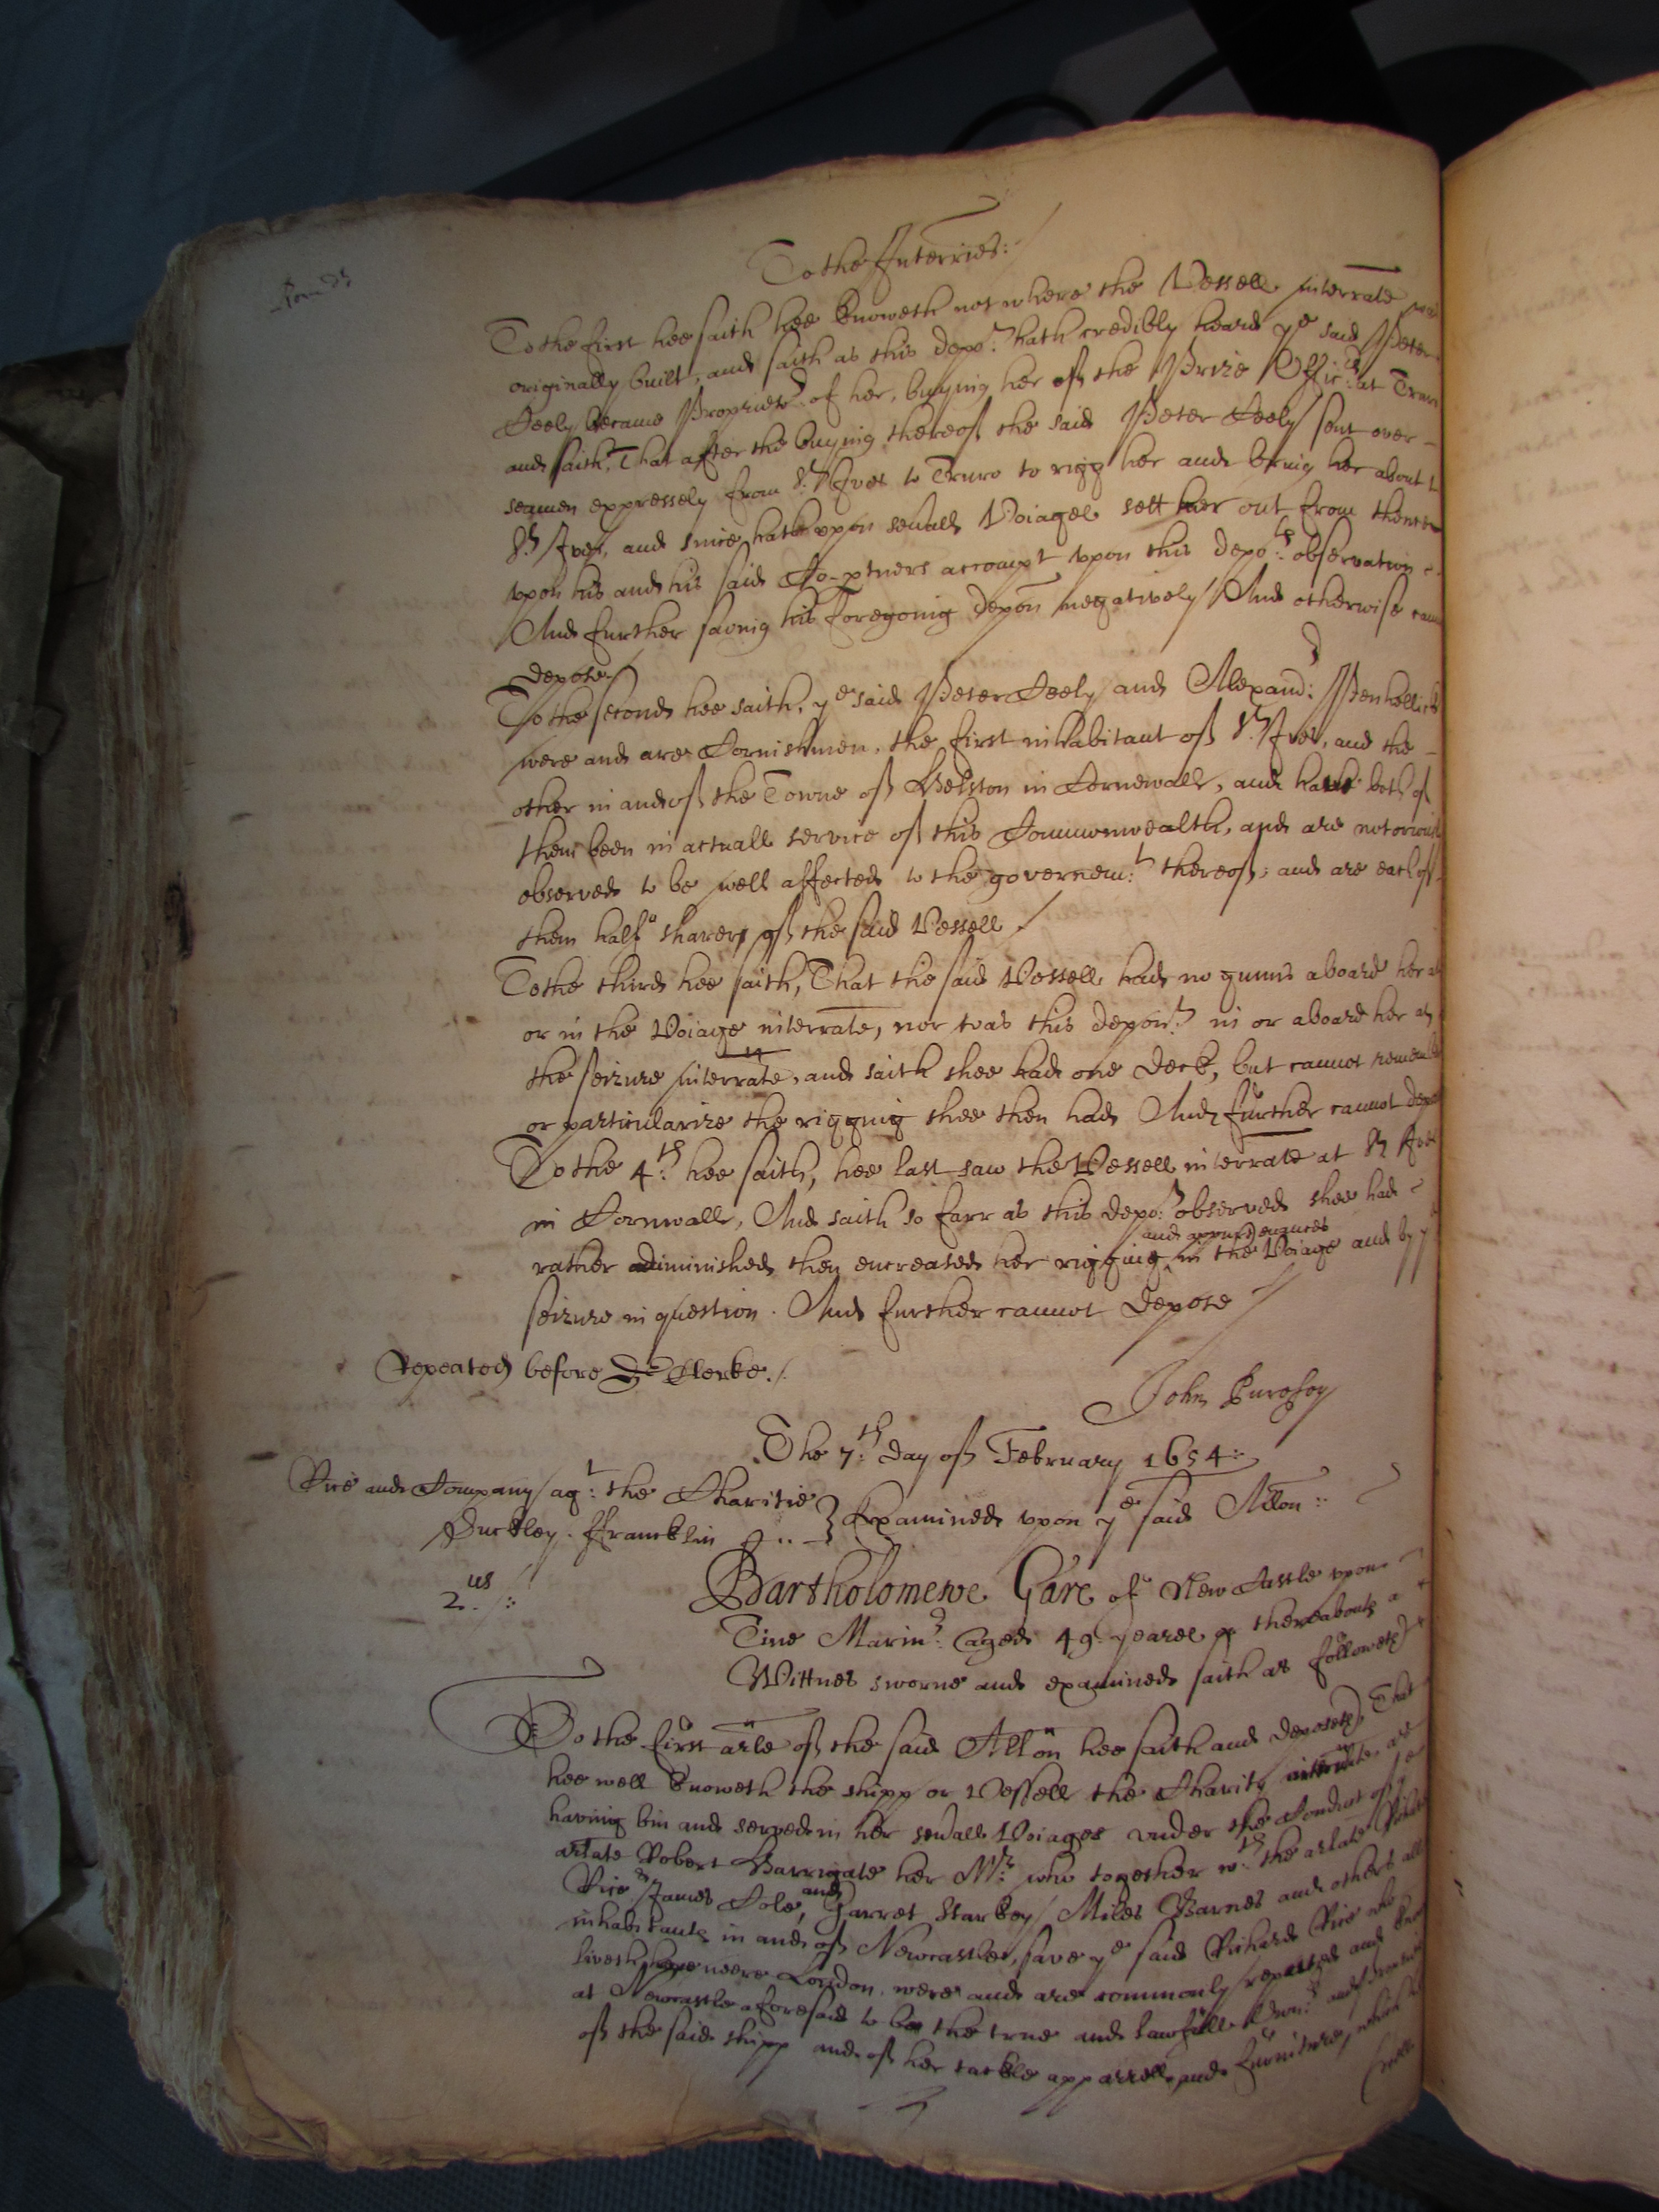 To the Interries:
To the first hee saith hee knoweth not where the Vessell interrate was
originally built, and saith as this depot: hath credibly heard ye said Peter
Ceely became Proprietr. of her, buying her of the Prize Officrs: at Truro
and saith, That after the buying thereof the said Peter Ceely sent over
seamen expressely from St: Ives to Truro to rigg her and bring her about to
St Ives, and since hath upon severall Voiages sett her out from thence
upon his and his said Co-ptners accompt upon this depots: observation
And further saving his foregoing depon negatively / And otherwise cannot
depose /
To the second hee saith, ye said Peter Ceely and Alexandr: Penhellick
were and are Cornishmen, the first inhabitant of St: Ives, and the
other in and of the Towne of Helston in Cornewall, and have both of
them been in actuall service of this Commonwealth, and are notoriously
observed to be well affected to the governemt: thereof; and are each of
them halfe sharers of the said Vessell /
To the third hee saith, That the said Vessell had no gunns aboard her at
or in the Voiage interrate, nor was this depont: in or aboard her at
the seizure interrate, and saith shee had one Deck, but cannot remember
or particularize the rigging shee then had And further cannot depose
To the 4th: hee saith, hee last saw the Vessell interrate at St Ives
in Cornwall, And saith so farr as this depot: observed shee had
and appurtenances
rather diminished then encreased her rigging, in the Voiage and by ye
seizure in question. And further cannot depose /
Repeated before Dr Clerke. /.
John
The 7th: day of February 1654:
Rice and Company agt: the Charitie
Buckley. Francklin
Examined upon ye said Allon:
2us /:
Bartholomewe Gare of New Castle upon
Tine Marinr: aged 49 yeares or thereabouts a
Wittnes sworne and examined saith as followeth
To the first arle of the said Allon hee saith and deposeth, That
hee well knoweth the shipp or Vessell the Charity
having bin and served in her severall Voiages under the Conduct of ye
arlate Robert Harrigate her Mr: who together wth: the arlate
Rice James Cole, and Garret Starkey / Miles Barnes and others all
inhabitants in and of Newcastle, save ye said Richard Rice who
liveth neere London, were and are commonly reputed and
at Newcastle aforesaid to be the true and lawfull Ownrs: and
of the said shipp and of her tackle apparrell and furniture, which